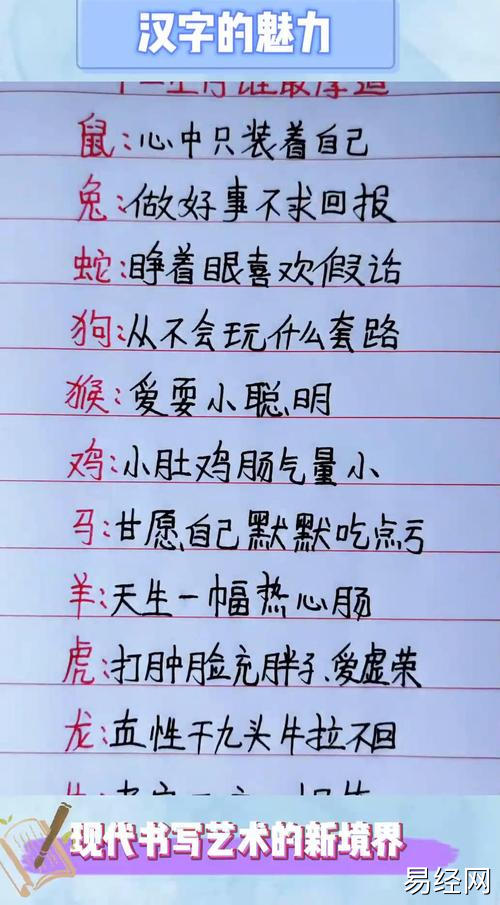 汉字的魅力
鼠:心中只装着自己
兔:做好事不求回报
蛇:睁着眼喜欢假话
狗:从不会玩什么套路
猴:爱耍小聪明
鸡:小肚鸡肠气量小
马:甘愿自己默默吃点亏
羊:天生一幅热心肠
虎:打肿脸充胖子、爱虚荣
龙:血性干九头牛拉不回
现代书写艺术的新境界
易经网